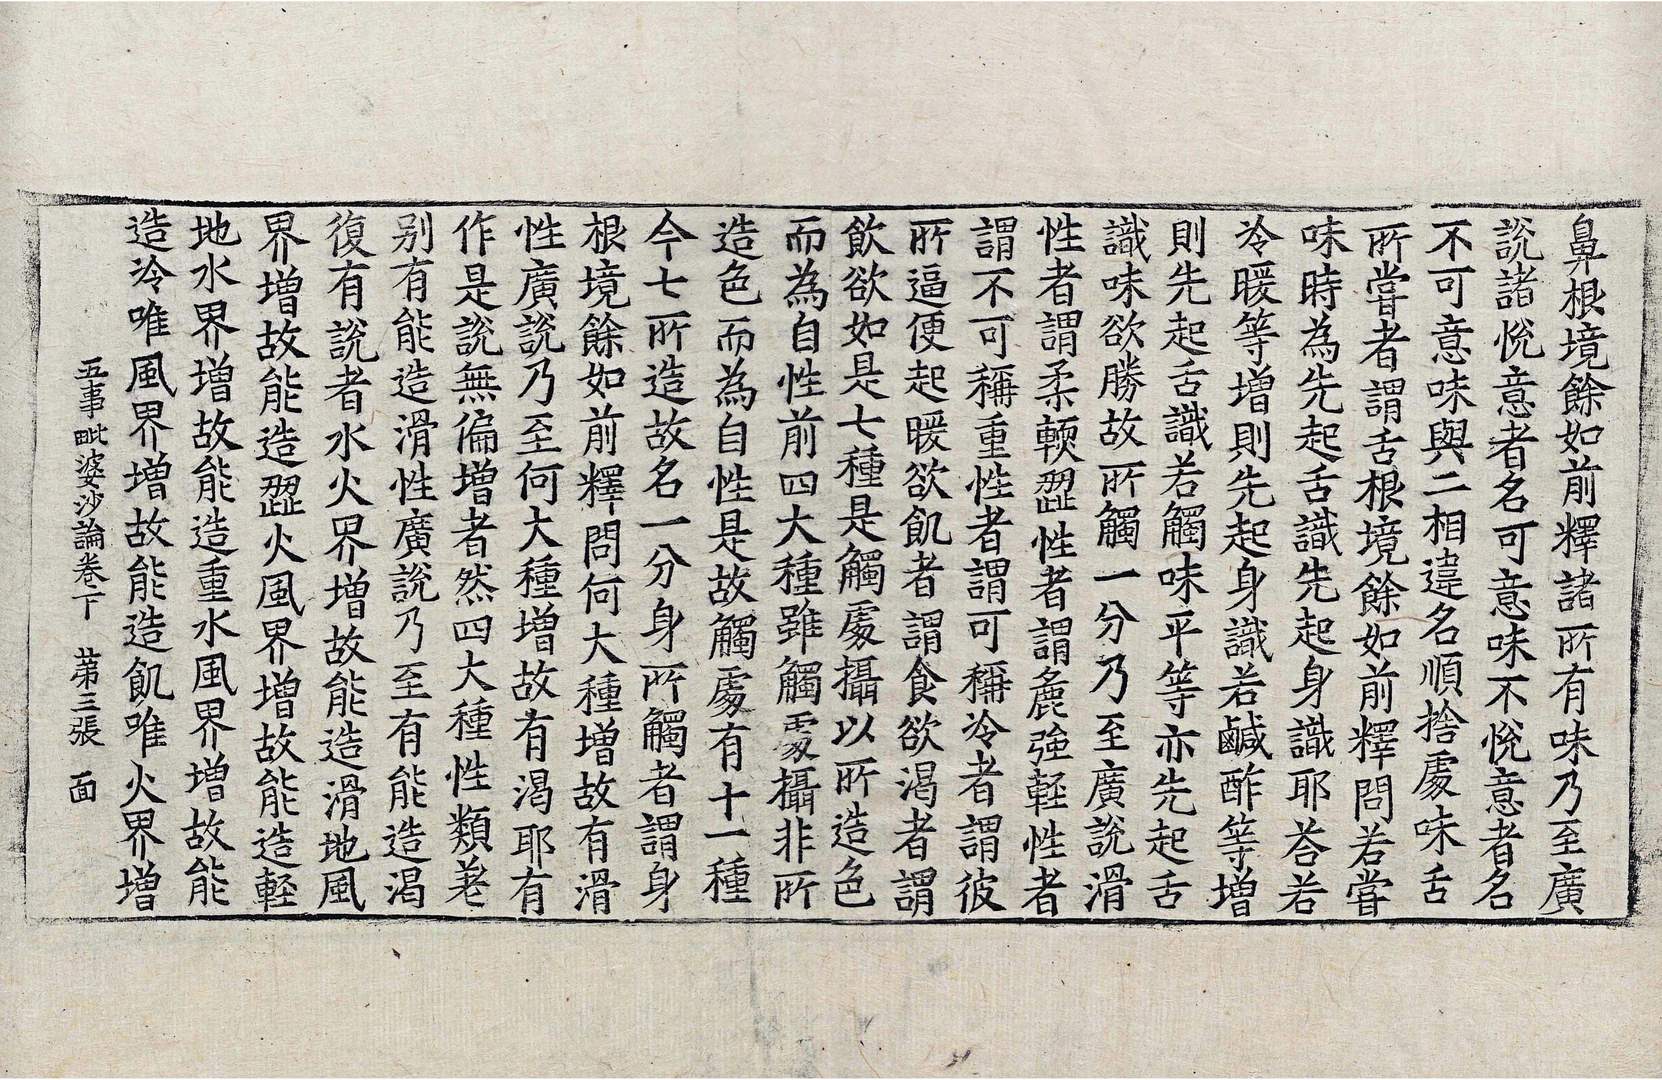 鼻根境餘如前釋諸所有味乃至廣
說諸悅意者名可意味不悅意者名
不可意味與二相違名順捨處味舌
所嘗者謂舌根境餘如前釋問若嘗
味時為先起舌識先起身識耶荅若
冷暖等增則先起身識若鹹酢等增
則先起舌識若觸味平等亦先起舌
識味欲勝故所觸一分乃至廣說滑
性者謂柔軟澁性者謂麁強輕性者
謂不可稱重性者謂可稱冷者謂彼
所逼便起暖欲飢者謂食欲渴者謂
飲欲如是七種是觸處攝以所造色
而為自性前四大種雖觸處攝非所
造色而為自性是故觸處有十一種
今七所造故名一分身所觸者謂身
根境餘如前釋問何大種增故有滑
性廣說乃至何大種增故有渴耶有
作是說無偏增者然四大種性類差
別有能造滑性廣說乃至有能造渴
復有說者水火界增故能造滑地風
界增故能造澁火風界增故能造輕
地水界增故能造重水風界增故能
造冷唯風界增故能造飢唯火界增
五事毗婆沙論卷下 第三張 面